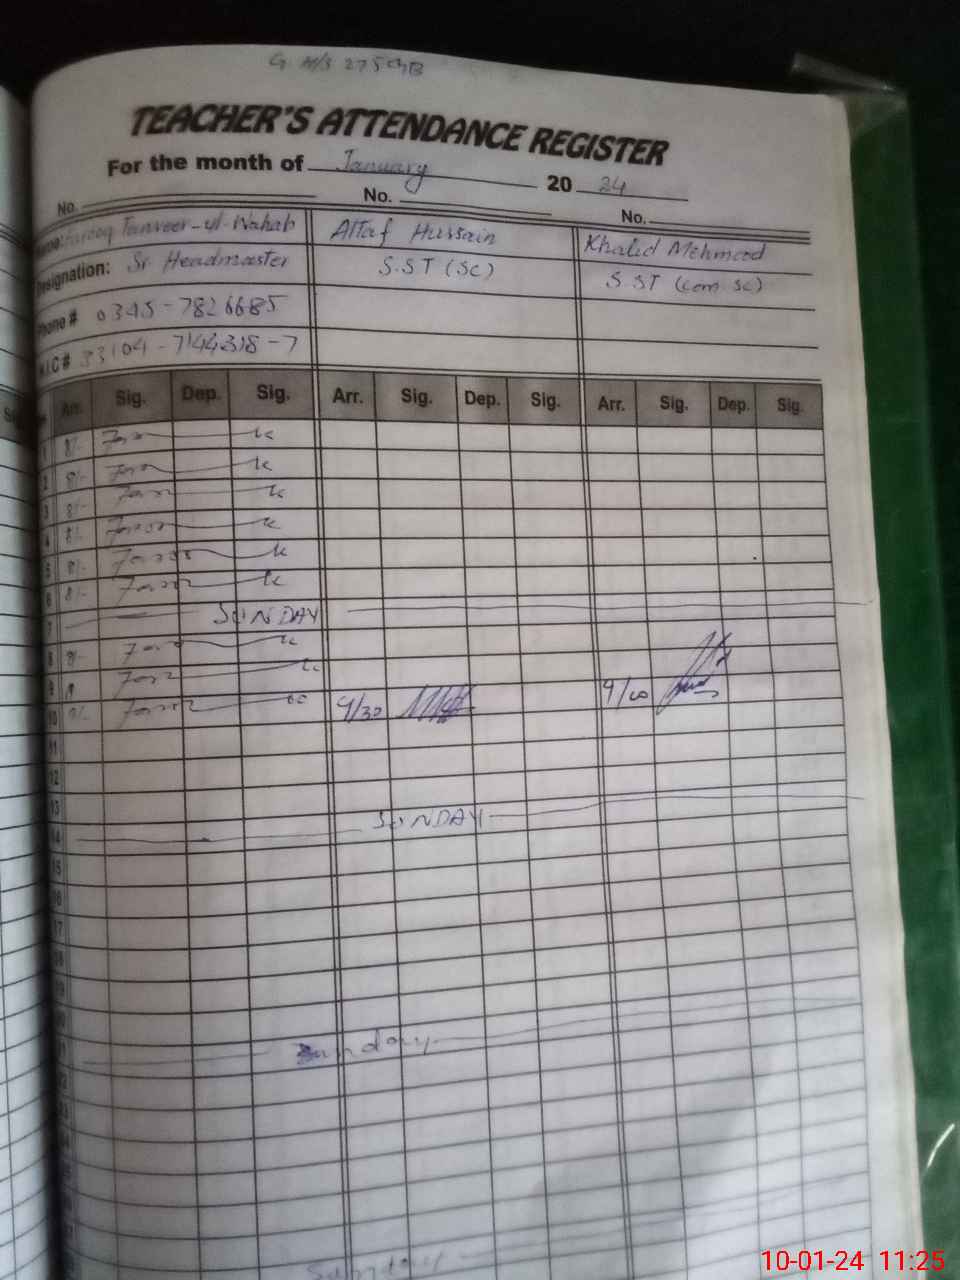 TEACHER'S ATTENDANCE REGISTER
For the month of January 20 24
No. No. No.
Tanveer-ul-Wahab Altaf Hussain Khalid Mehmood
Designation: Sr. Headmaster S.ST (Sc) S.ST (Com. Sc)
Phone # 0345-7826685
33104-7144318-7
Arr. Sig. Dep. Sig. Arr. Sig. Dep. Sig. Arr. Sig. Dep. Sig.
1 8/-
2 8/-
3 8/-
4 8/-
5 8/-
6 8/-
7 SUNDAY
8 8/-
9
10 9/30 9/10
11
12
13
14 SUNDAY
15
16
17
18
19
20
21 Sunday
22
23
24
10-01-24 11:25